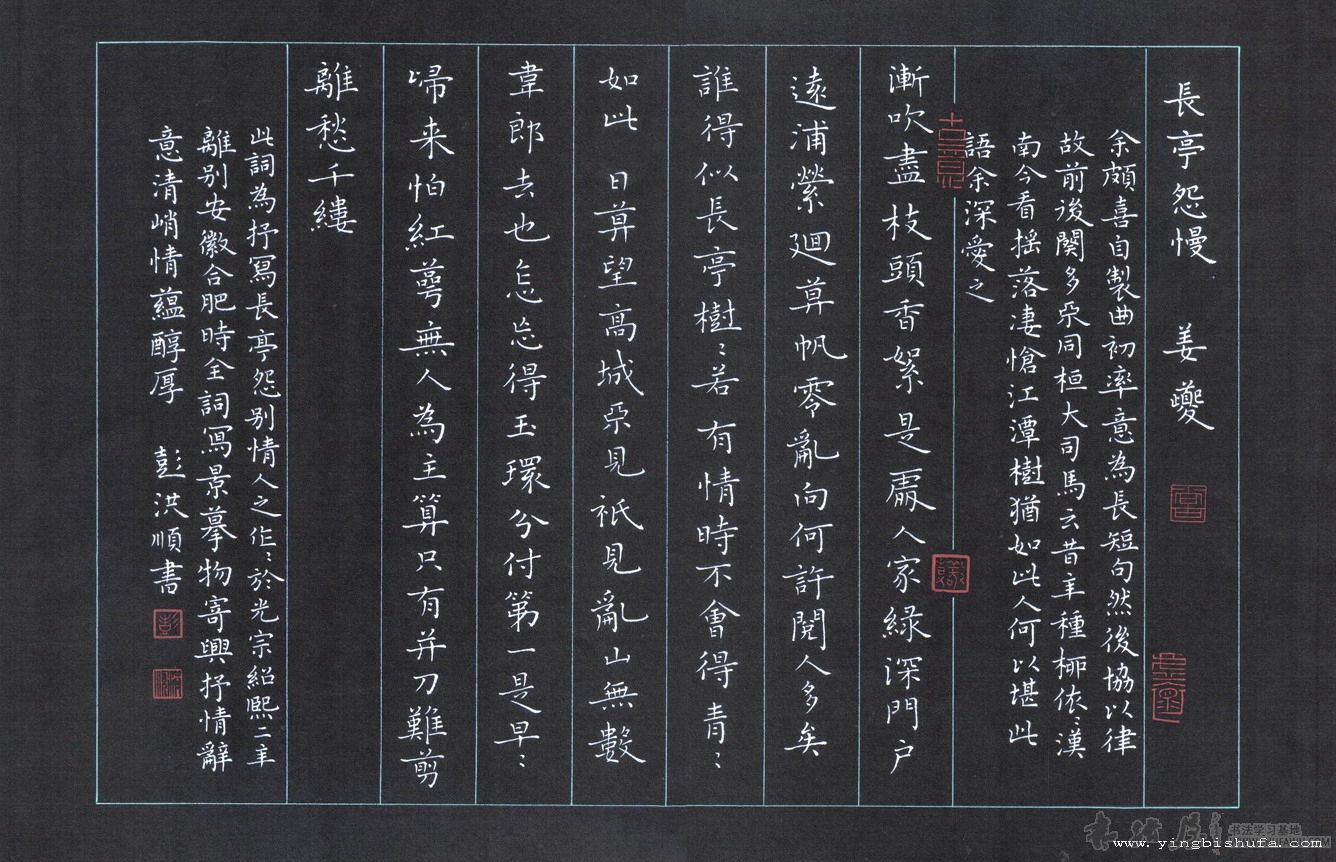 長亭怨慢　姜夔
余頗喜自製曲初率意為長短句然後協以律
故前後闋多不同桓大司馬云昔年種柳依〻漢
南今看搖落凄愴江潭樹猶如此人何以堪此
語余深愛之
漸吹盡枝頭香絮是處人家綠深門戶
遠浦縈迴算帆零亂向何許閱人多矣
誰得似長亭樹〻若有情時不會得青〻
如此　日算望高城不見祇見亂山無數
韋郎去也怎忘得玉環分付第一是早〻
歸来怕紅萼無人為主算只有并刀難剪
離愁千縷
此詞為抒寫長亭怨别情人之作〻於光宗紹熙二年
離别安徽合肥時全詞寫景摹物寄興抒情辭
意清峭情蘊醇厚　彭洪順書
书法学习基地
www.yingbishufa.com